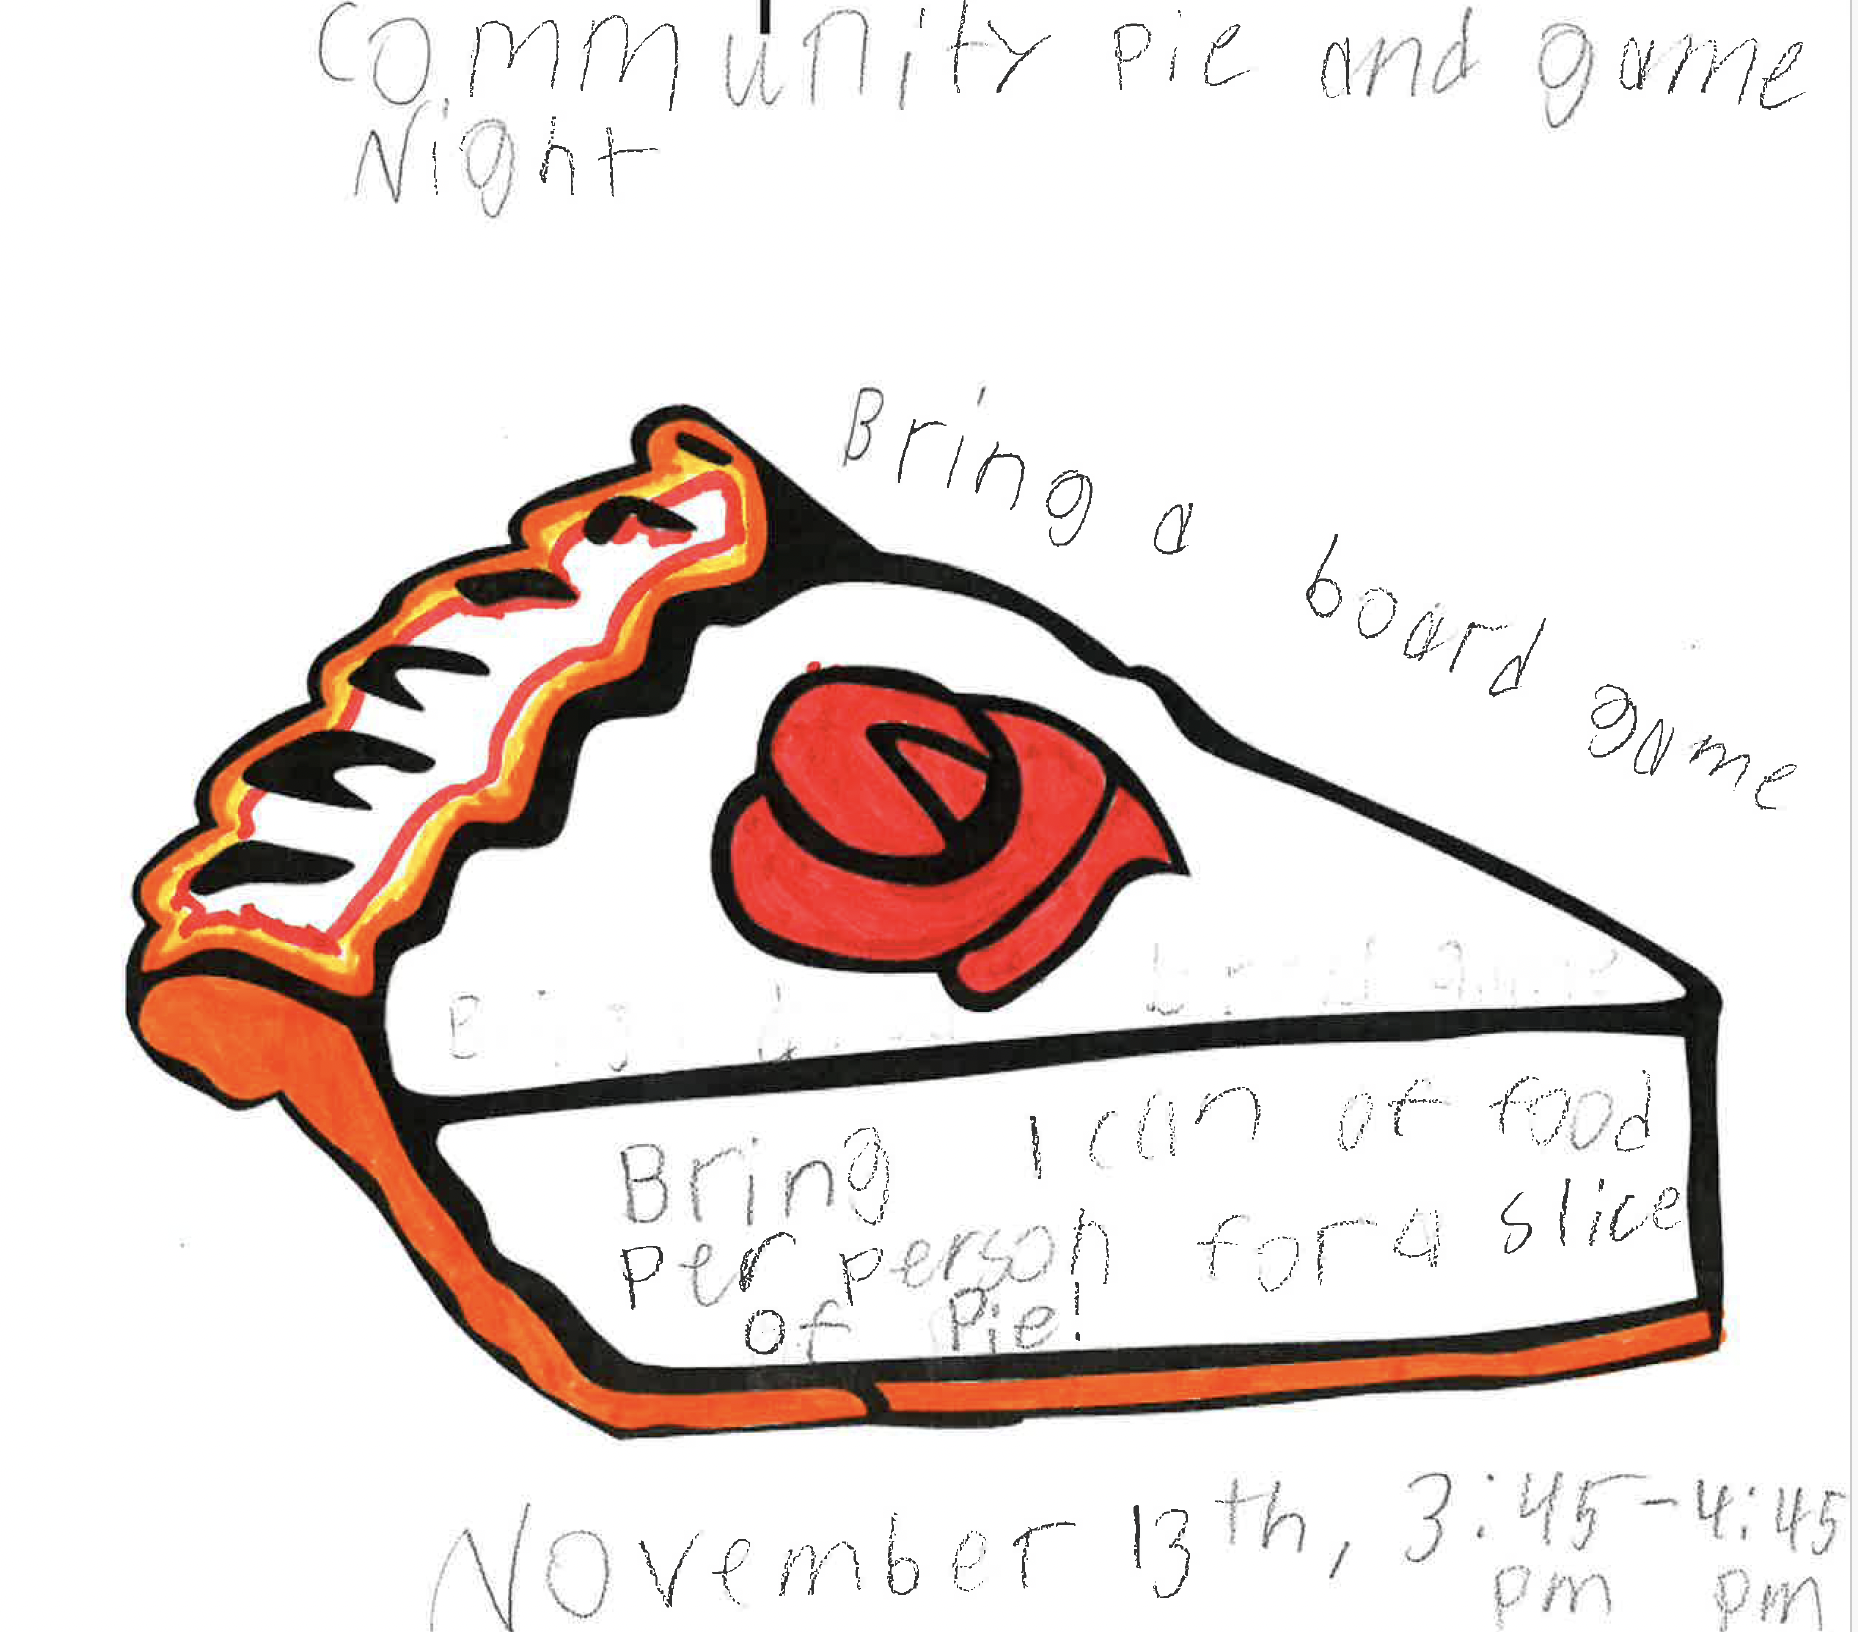 Community pie and game
Night
Bring a board game
Bring 1 can of food
per person for a slice
of Pie!
November 13th, 3:45-4:45
pm pm